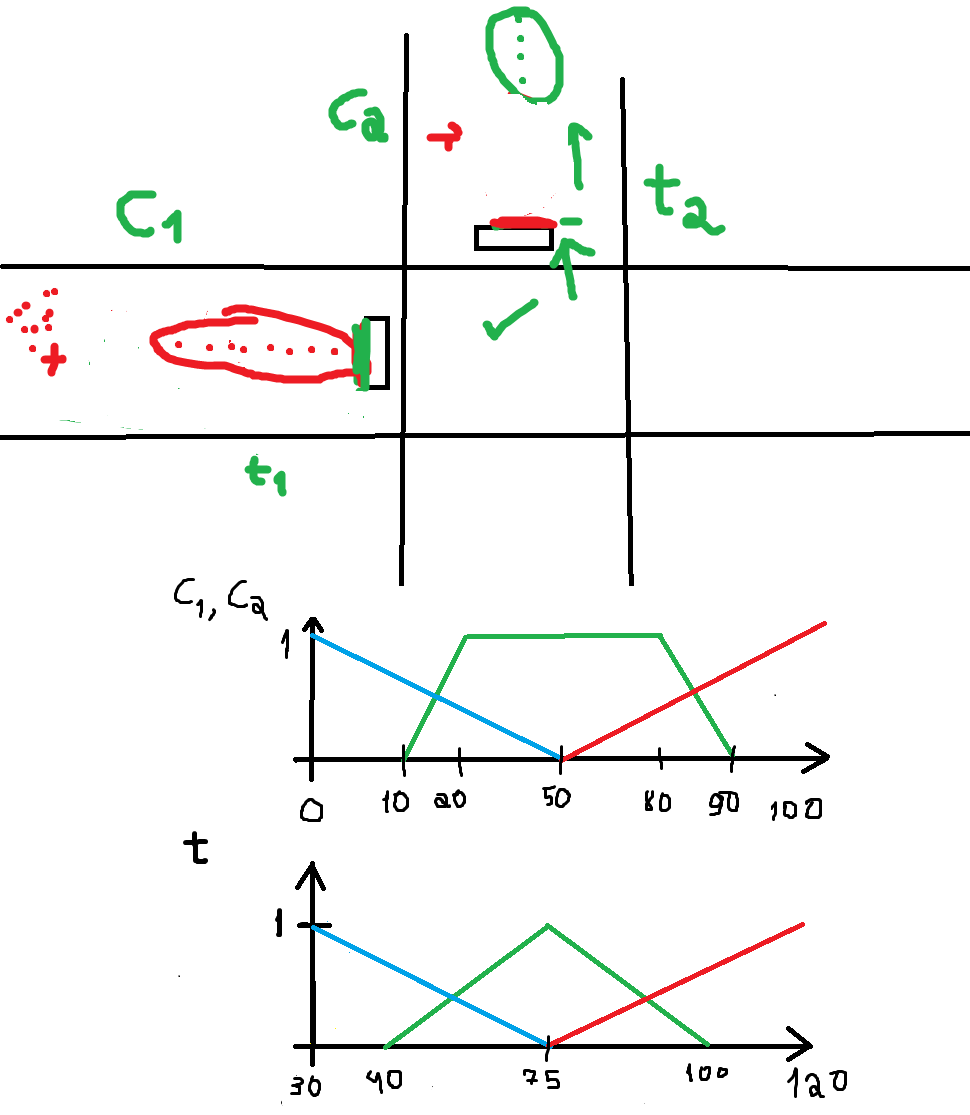 C2
t2
C1
t1
C1, C2
1
0 10 20 50 80 90 100
t
1
30 40 75 100 120